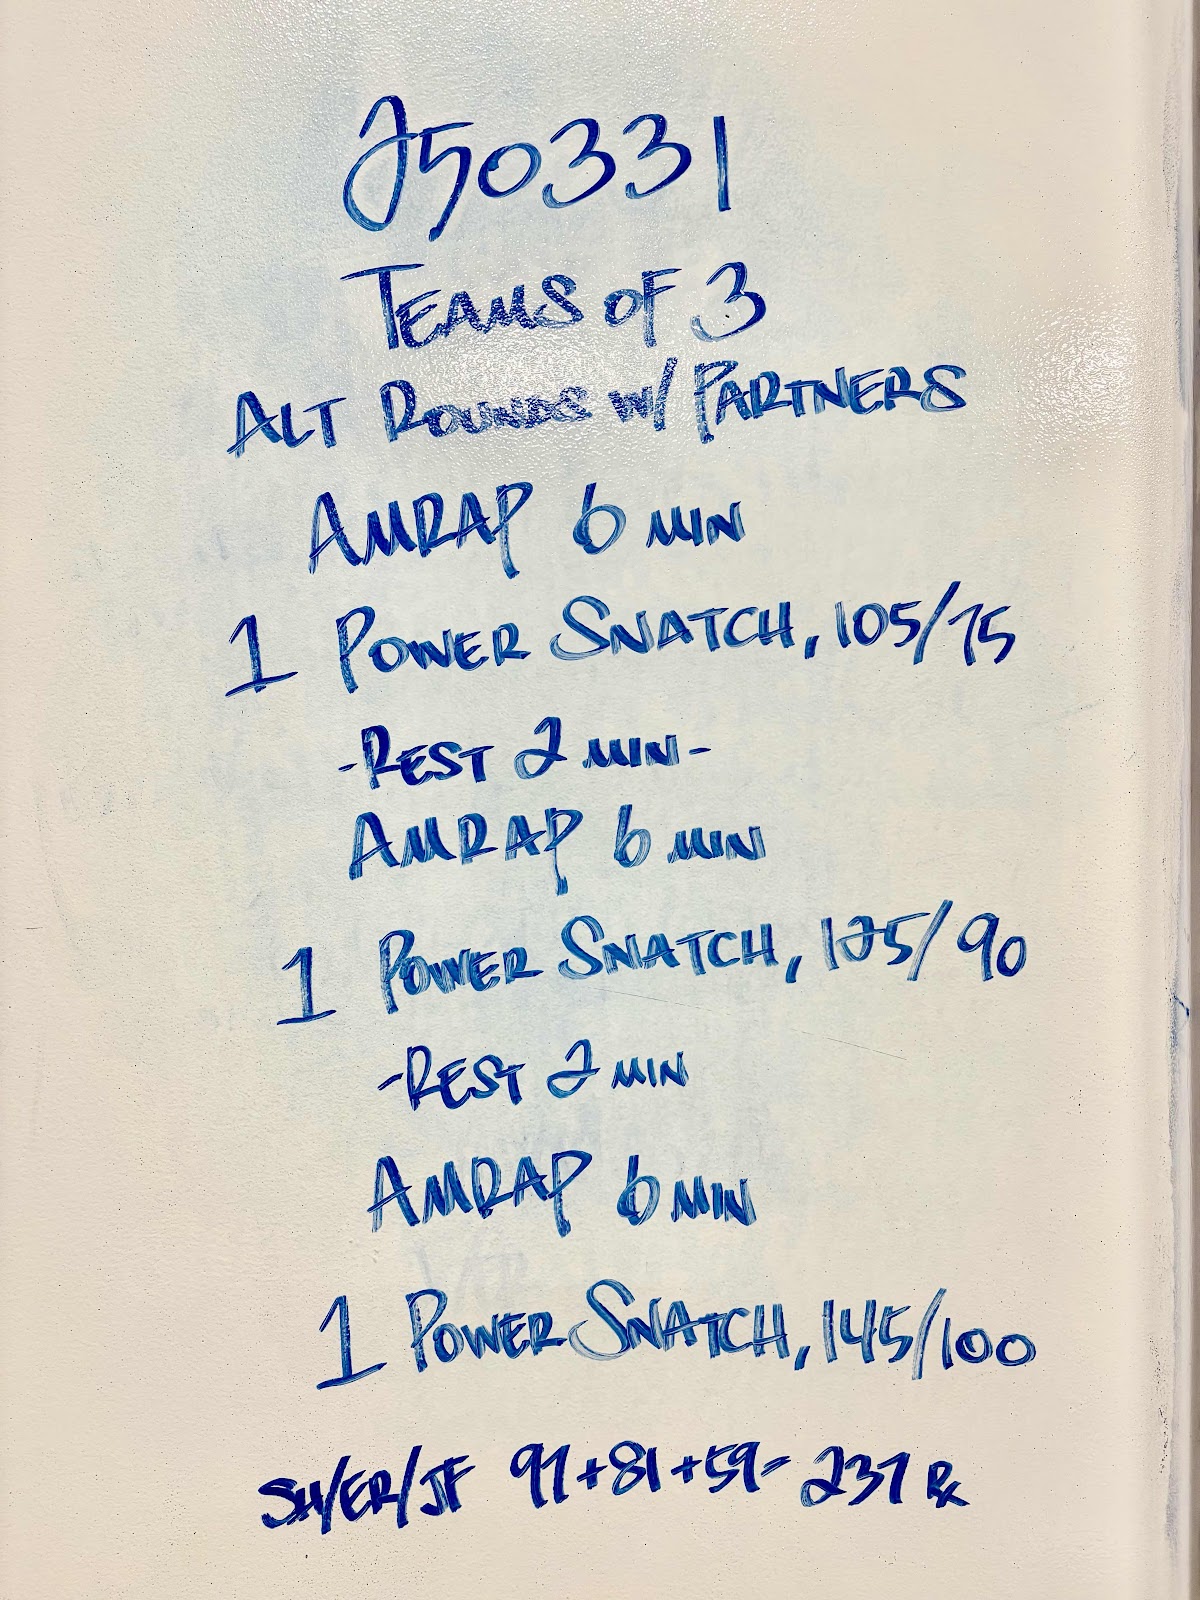 250331
TEAMS OF 3
ALT ROUNDS W/ PARTNERS
AMRAP 6 MIN
1 POWER SNATCH, 105/75
-REST 2 MIN-
AMRAP 6 MIN
1 POWER SNATCH, 125/90
-REST 2 MIN
AMRAP 6 MIN
1 POWER SNATCH, 145/100
SH/ER/JF 97+81+59- 237 Rx